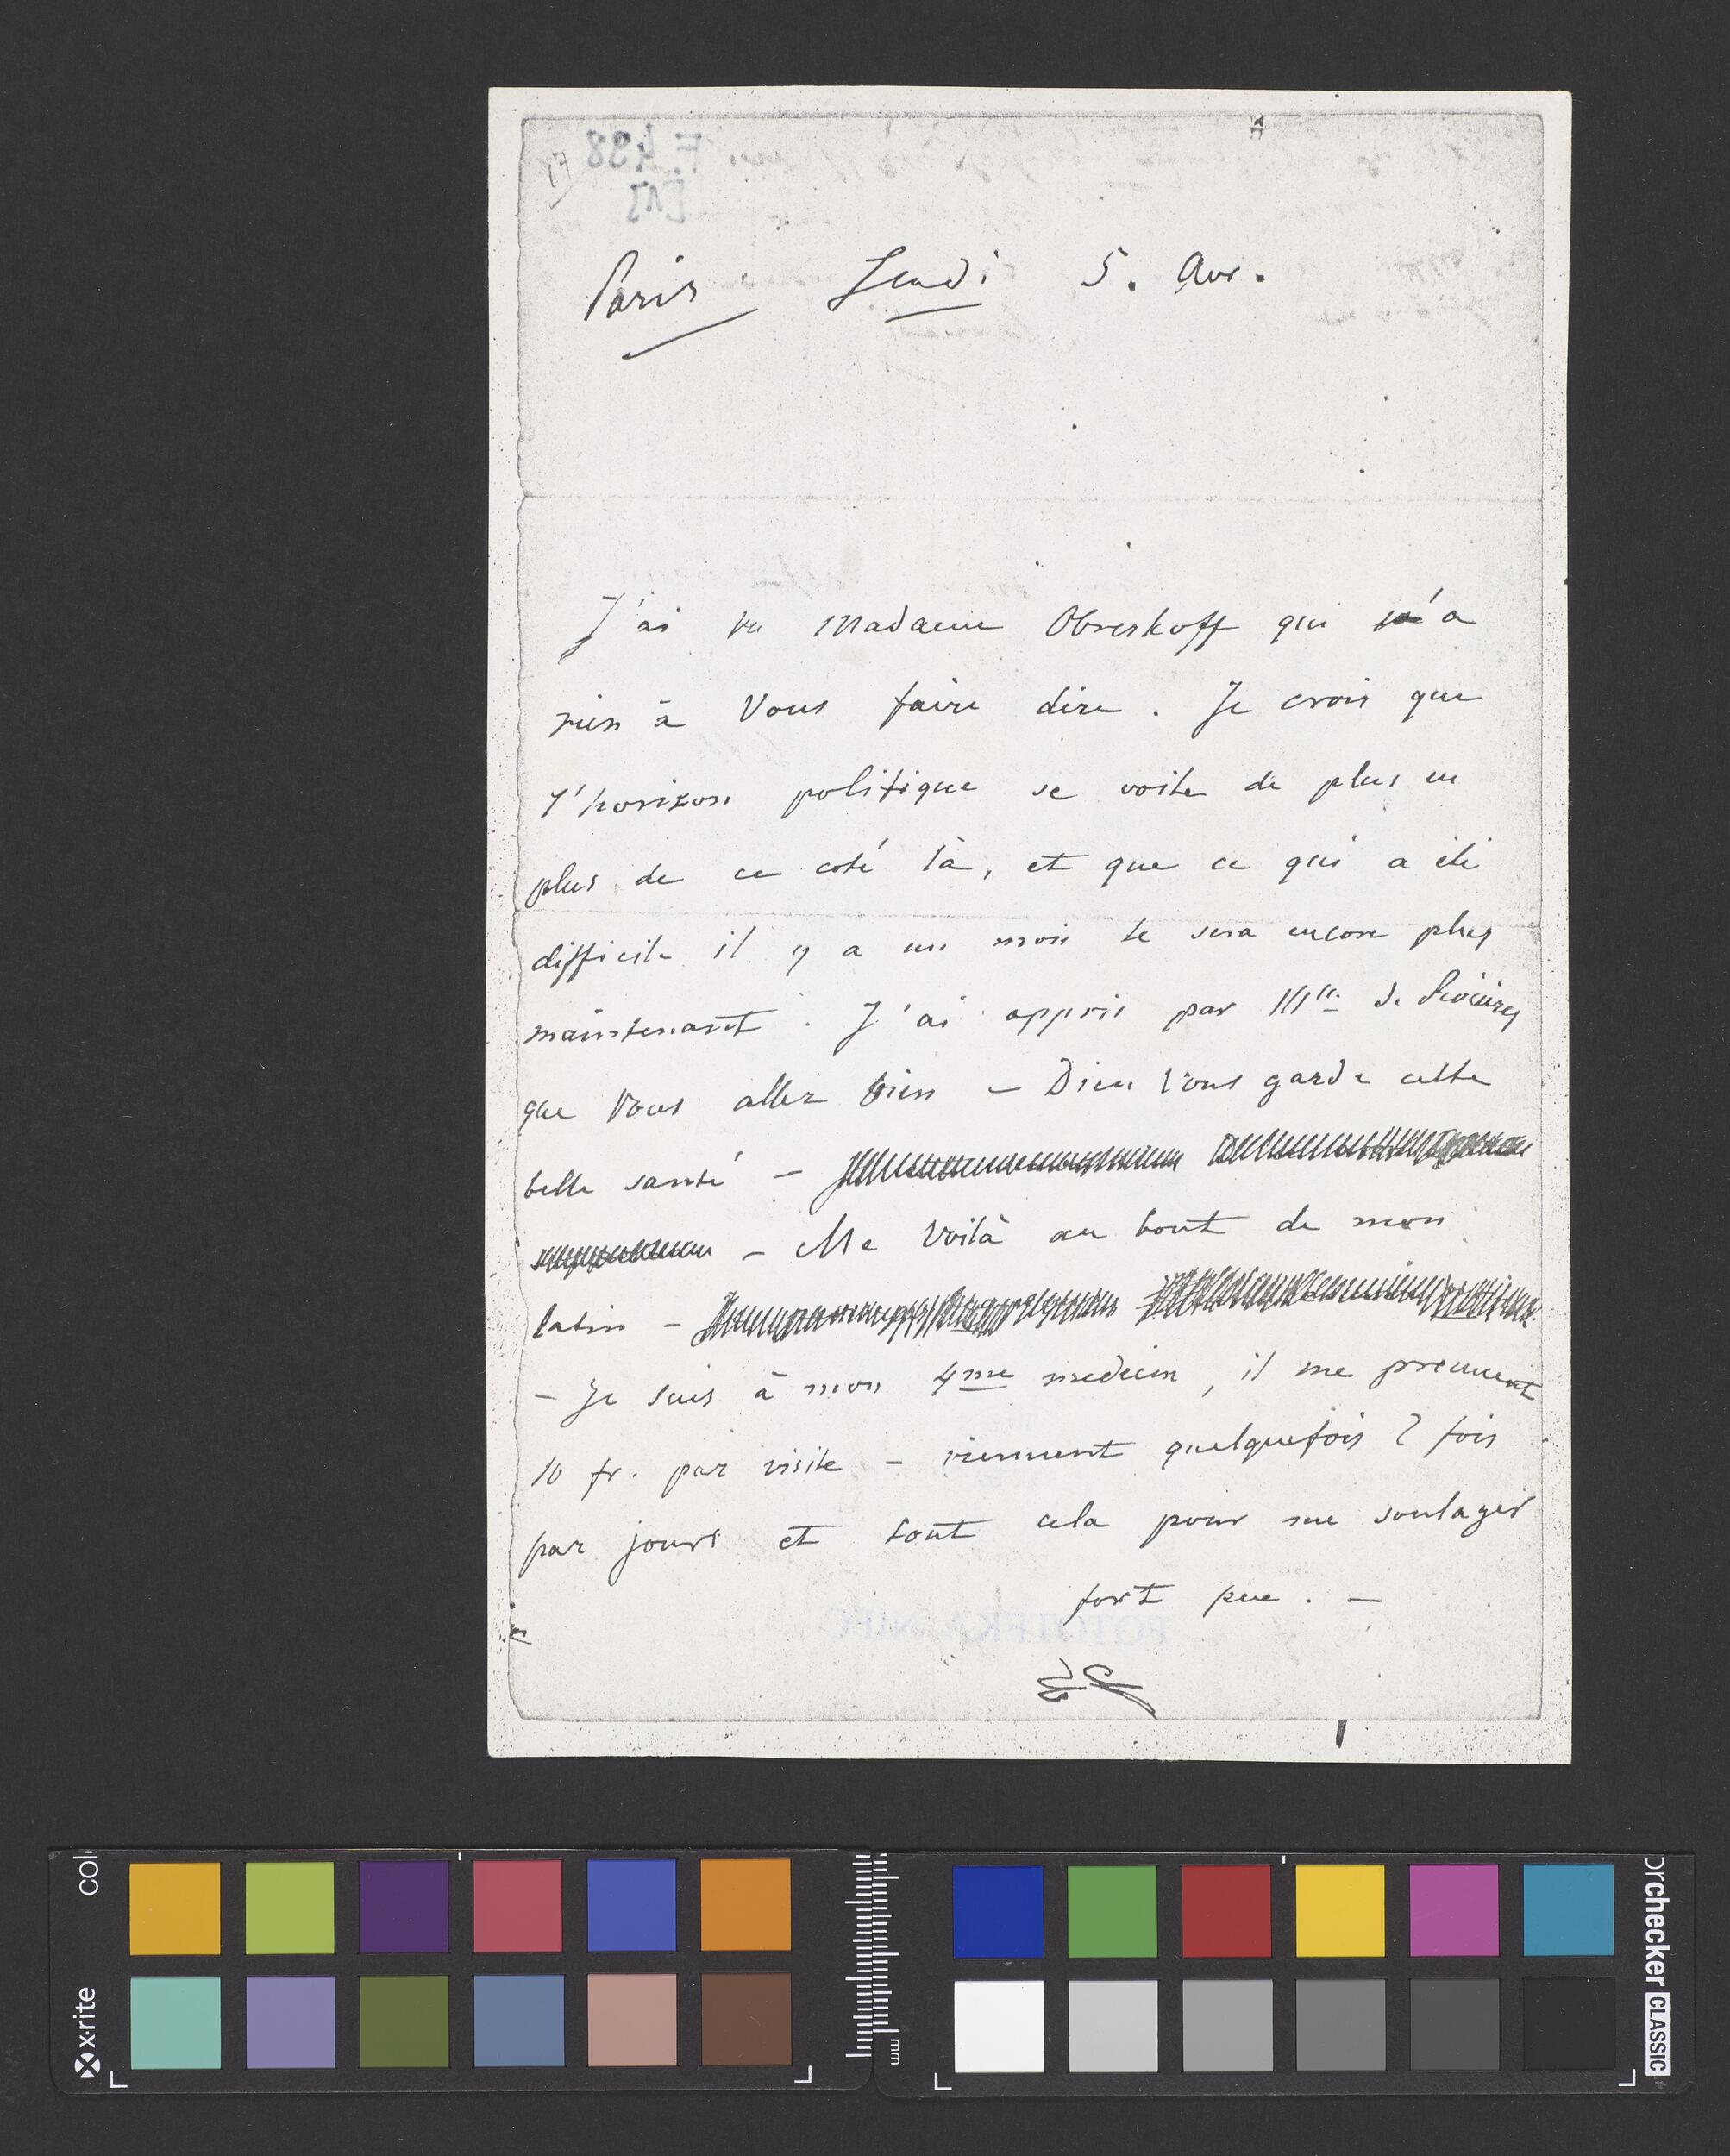 F. 438
[V]
17
Paris Jeudi 5. Avr.
J'ai vu Madame Obreskoff qui n'a
rien à Vous faire dire. Je crois que
l'horizon politique se voile de plus en
plus de ce coté là, et que ce qui a été
difficile il y a un mois le sera encore plus
maintenant. J'ai appris par Mlle de
que Vous allez bien – Dieu Vous garde cette
belle santé –
– Me Voilà au bout de mon
latin –
– Je suis à mon 4me medecin, il me prennent
10 fr. par visite – viennent quelquefois 2 fois
par jours et tout cela pour me soulager
fort peu. –
x-rite
colorchecker CLASSIC
mm